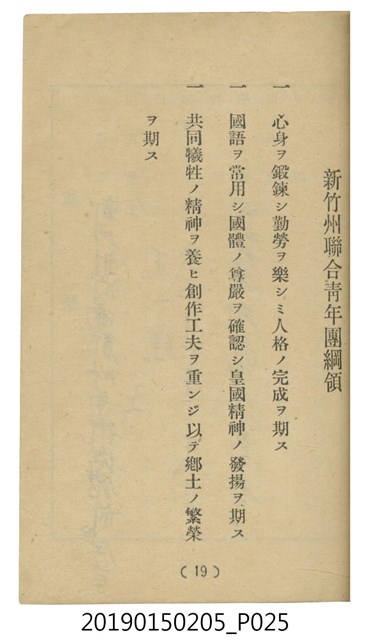 新竹州聯合靑年團綱領
一 心身ヲ鍛鍊シ勤勞ヲ樂シミ人格ノ完成ヲ期ス
一 國語ヲ常用シ國體ノ尊嚴ヲ確認シ皇國精神ノ發揚ヲ期ス
一 共同犧牲ノ精神ヲ養ヒ創作工夫ヲ重ンジ以テ鄉土ノ繁榮
ヲ期ス
(19)
20190150205_P025